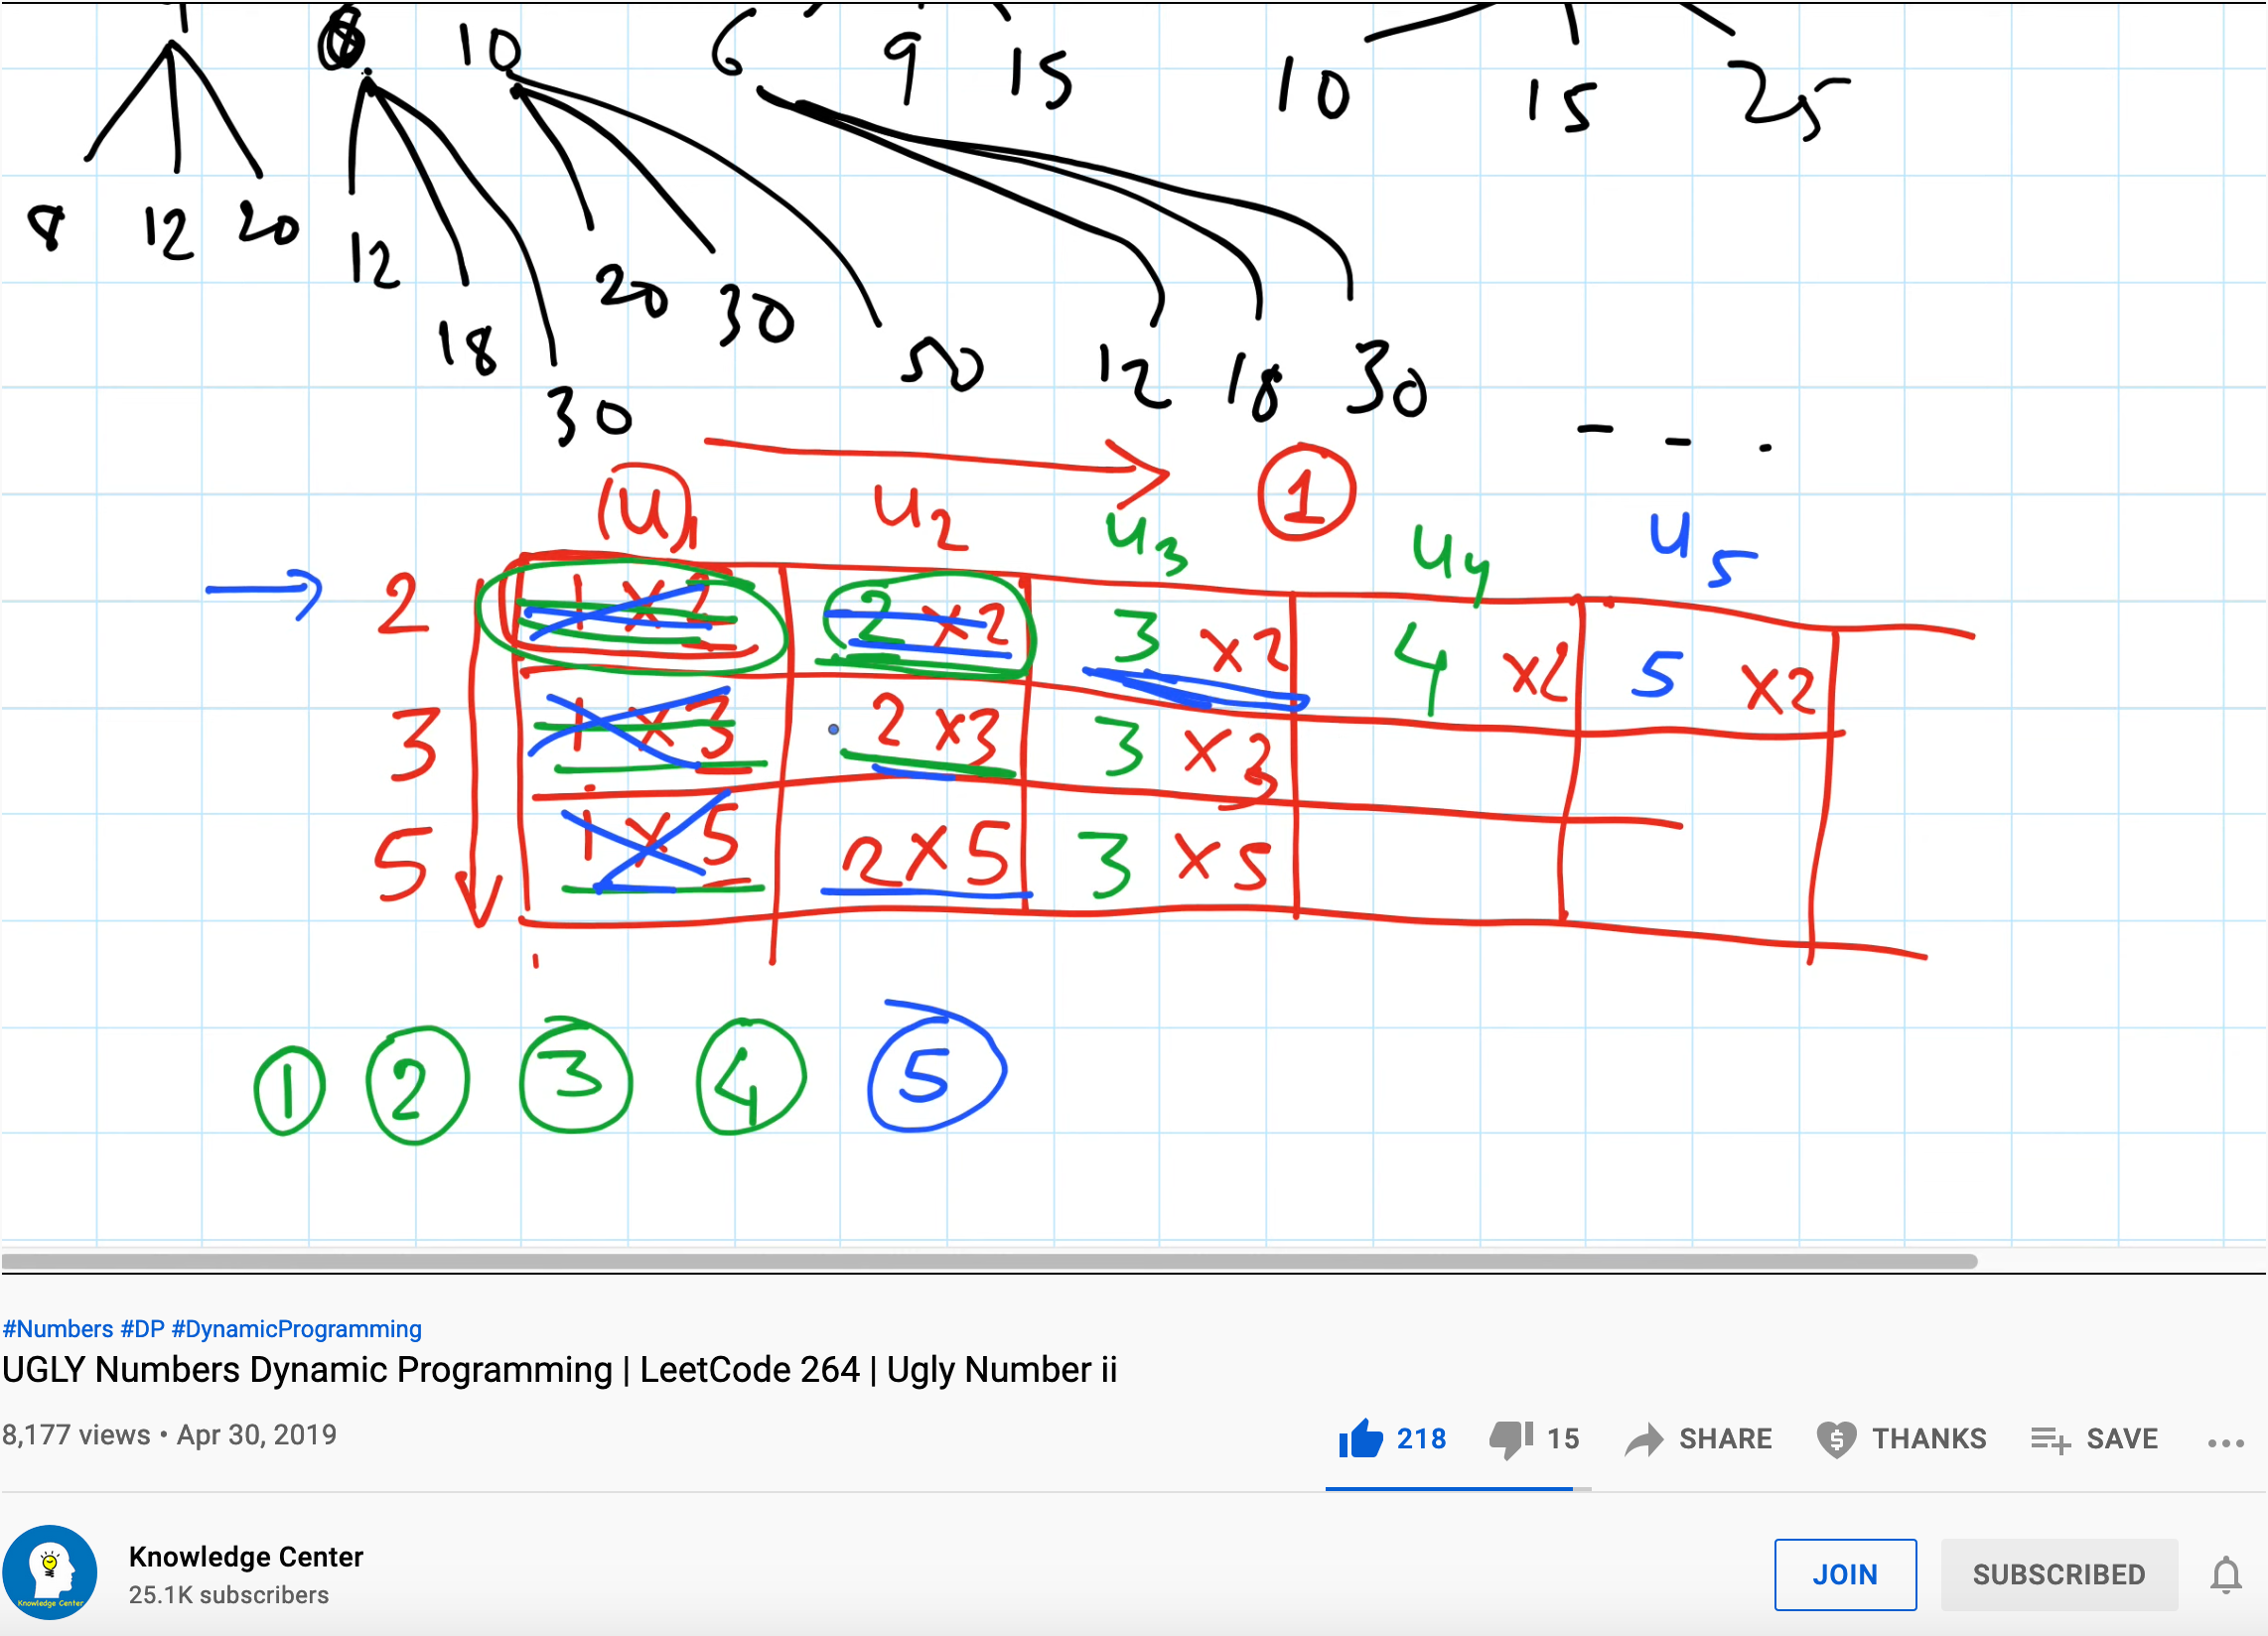 10 6 9 15 10 15 25
8 12 20 12 18 30 20 30 50 12 18 30 - - .
u1 u2 u3 1 u4 u5
2 1 x 2 2 x2 3 x2 4 x2 5 x2
3 1 x 3 2 x3 3 x3
5 1 x 5 2 x 5 3 x 5
1 2 3 4 5
#Numbers #DP #DynamicProgramming
UGLY Numbers Dynamic Programming | LeetCode 264 | Ugly Number ii
8,177 views • Apr 30, 2019 218 15 SHARE THANKS SAVE
Knowledge Center
Knowledge Center
25.1K subscribers
JOIN SUBSCRIBED